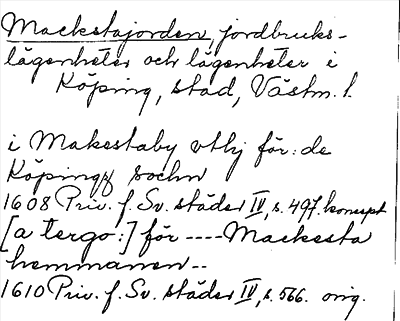 Mackstajorden, jordbruks-
lägenheter och lägenheter i
Köping, stad, Västm. l.
i Makestaby vthj för:de
Köpingz sochn
1608 Priv. f. Sv. städer IV, s. 497. koncept
[a tergo:] för ---- Mackesta
hemmanen--
1610 Priv. f. Sv. städer IV, s. 566. orig.